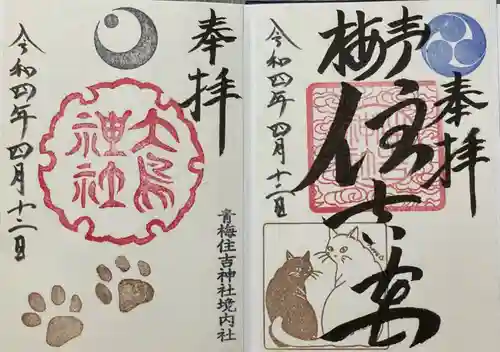 奉拝
大鳥
神社
令和四年四月十二日
青梅住吉神社境内社
奉拝
青梅
住吉
令和四年四月十二日